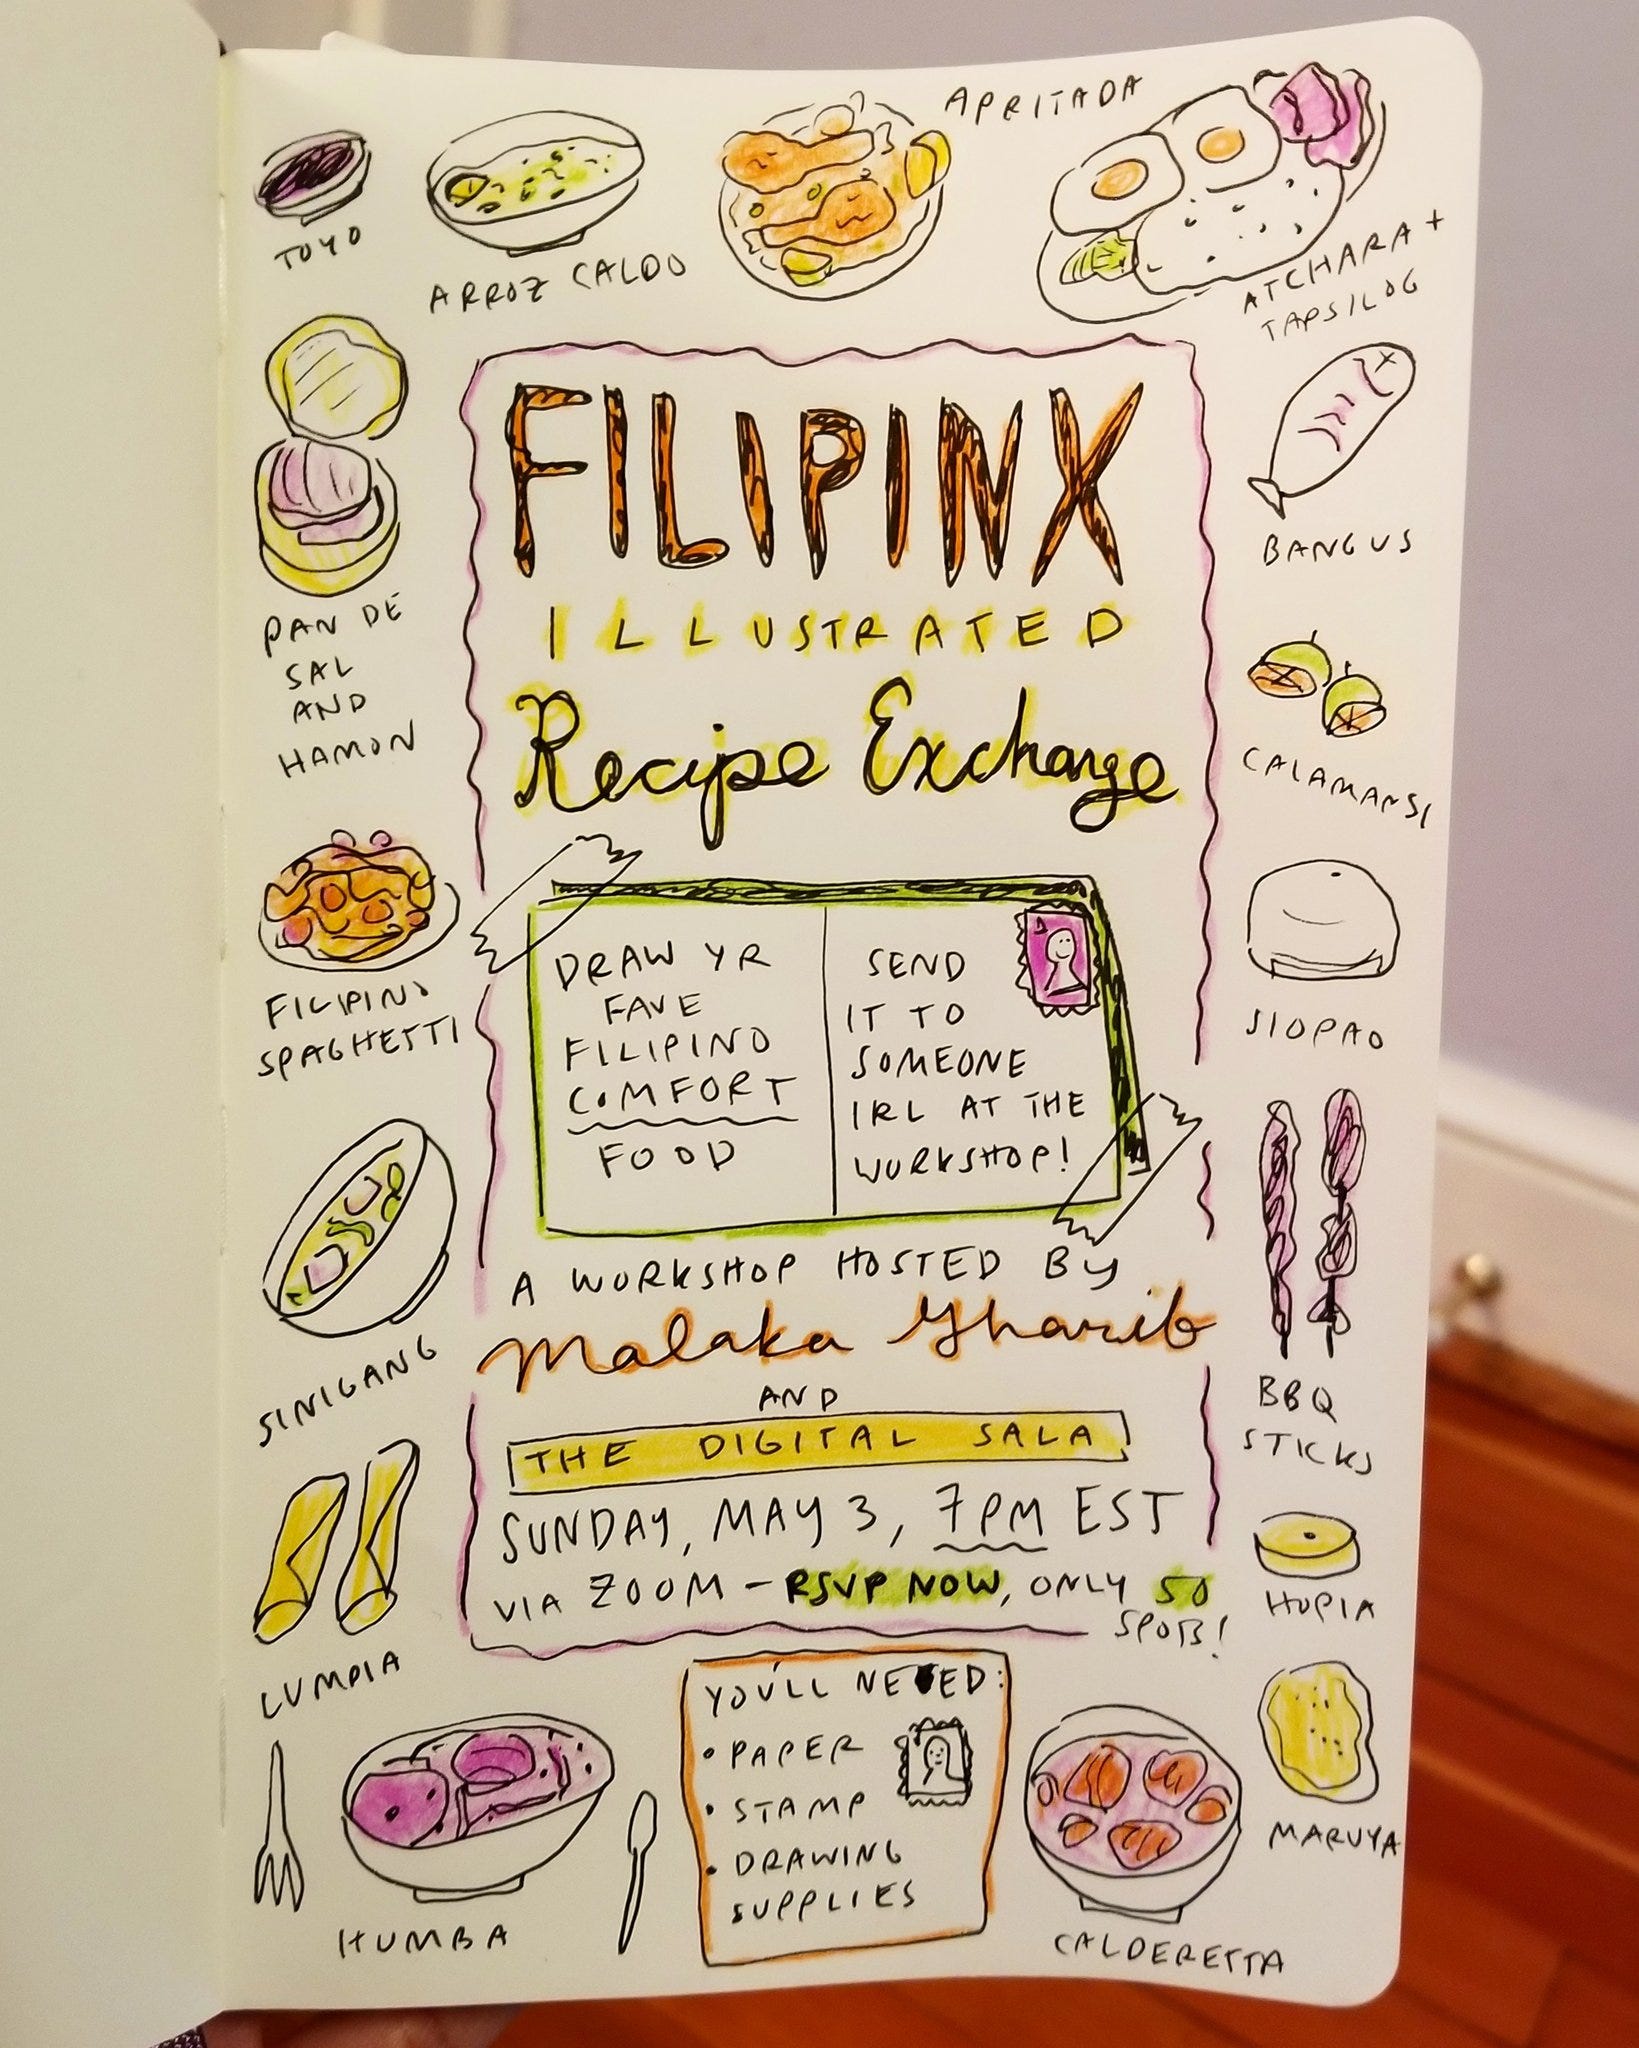 TOYO
ARROZ CALDO
APRITADA
ATCHARA +
TAPSILOG
PAN DE
SAL
AND
HAMON
BANGUS
FILIPINX
ILLUSTRATED
Recipe Exchange
CALAMANSI
FILIPINO
SPAGHETTI
SIOPAO
DRAW YR
FAVE
FILIPINO
COMFORT
FOOD
SEND
IT TO
SOMEONE
IRL AT THE
WORKSHOP!
SINIGANG
BBQ
STICKS
A WORKSHOP HOSTED By
Malaka Gharib
AND
THE DIGITAL SALA
SUNDAY, MAY 3, 7PM EST
VIA ZOOM - RSVP NOW, ONLY 50
SPOTS!
LUMPIA
HOPIA
YOU'LL NEED:
• PAPER
• STAMP
• DRAWING
SUPPLIES
HUMBA
CALDERETTA
MARUYA